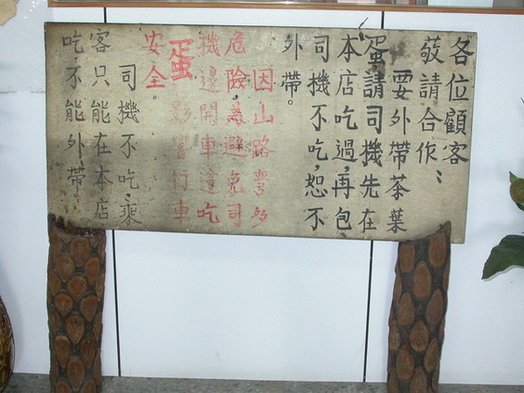 各位顧客
敬請合作：
要外帶茶葉
蛋請司機先在
本店吃過，再包，
司機不吃，恕不
外帶。
因山路彎多
危險，為避免司
機邊開車邊吃
蛋影響行車
安全。
司機不吃，乘
客只能在本店
吃，不能外帶。